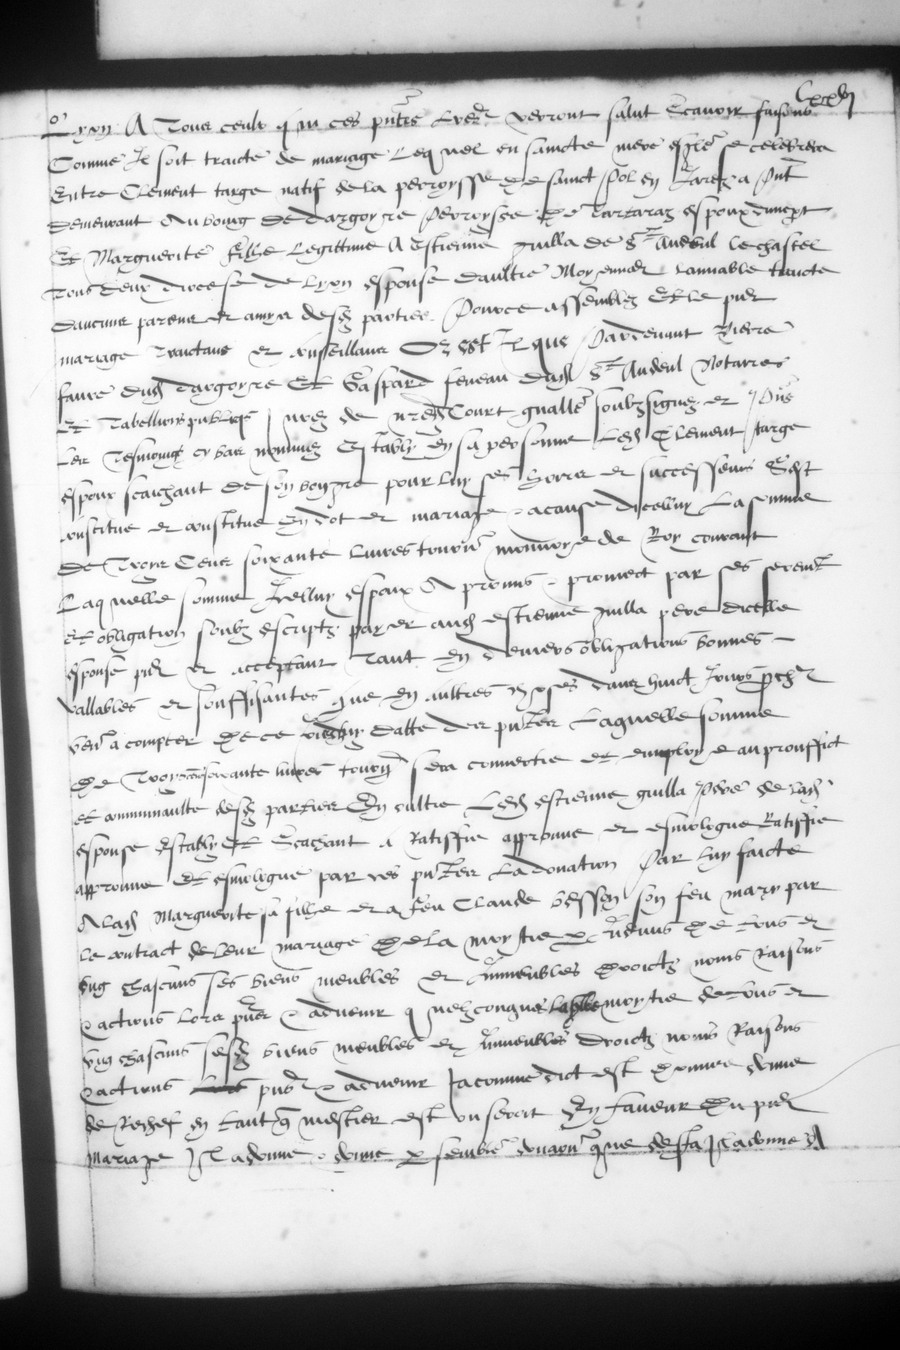 Lxxxvj
Lyon A Tous ceulx q in ces pntes Lres verront salut Scavoir faisons
Comme Il soit traicte de mariage Lequel en saincte mere esglise se celebrera
Entre Clement targe natif de la perroysse de sainct Pol en Jarez a pnt
demeurant Au bourg de dargoyre Perroysse de Tartaraz espoux dunept
Et Marguerite fille Legittime A estienne gulla de st Andeul le chastel
Tous deux diocese de Lyon espouse daultre Moyennant lamiable traicte
daucuns parens et amys desd parties Pource assemblez Et le pnt
mariage traictans et conseillans Or est Il que Pardevant Pierre
faure dud dargoyre Et Gaspard feneau dud st Andeul Notaires
Et Tabellions publicqs Jurez de nred Court gnalle soubzsignez et Pns
Les Tesmoings cy bas nommez Establyz en sa personne Led Clement targe
espoux scaichant de son bon gre pour luy ses hoirs et successeurs Sest
constitue et constitue en dot et mariage & a cause dicelluy La somme
de Troys Cens soixante livres tourn monnoye de Roy courant
Laquelle somme Icelluy espoux A promis & promect par ses serement
Et obligation soubz escriptz payer aud estienne gulla pere dicelle
espouse pnt et acceptant Tant en deniers obligations bonnes
vallables et souffisantes que en aultres choses dans huict Jours proch
ven a compter de ce jourdhuy datte des pntes Laquelle somme
de Troys cens soixante livres tourn sera convertie et employe au prouffict
et communaulte desd parties En oultre Led estienne gulla Pere de lad
espouse Estably Et Scachant A Ratiffie approuve et esmologue Ratiffie
approuve Et esmologue par ces pntes La donation Par luy faicte
A lad Marguerite sa fille et a feu Claude bessey son feu mary par
le contract de leur mariage de la moytie p Indivis de tous et
ung chascuns ses biens meubles et Immeubles droictz noms Raisons
& actions Lors pns & advenir quelzconques Lad moytie de tous et
ung chascuns sesd biens meubles et Immeubles droictz noms Raisons
& actions pns & advenir Ja comme dict est donnee donne
de Rechef en tant q mestier est ou seroit En faveur du pnt
mariage Il a donne & donne p semble donation que dessus Il a donne A